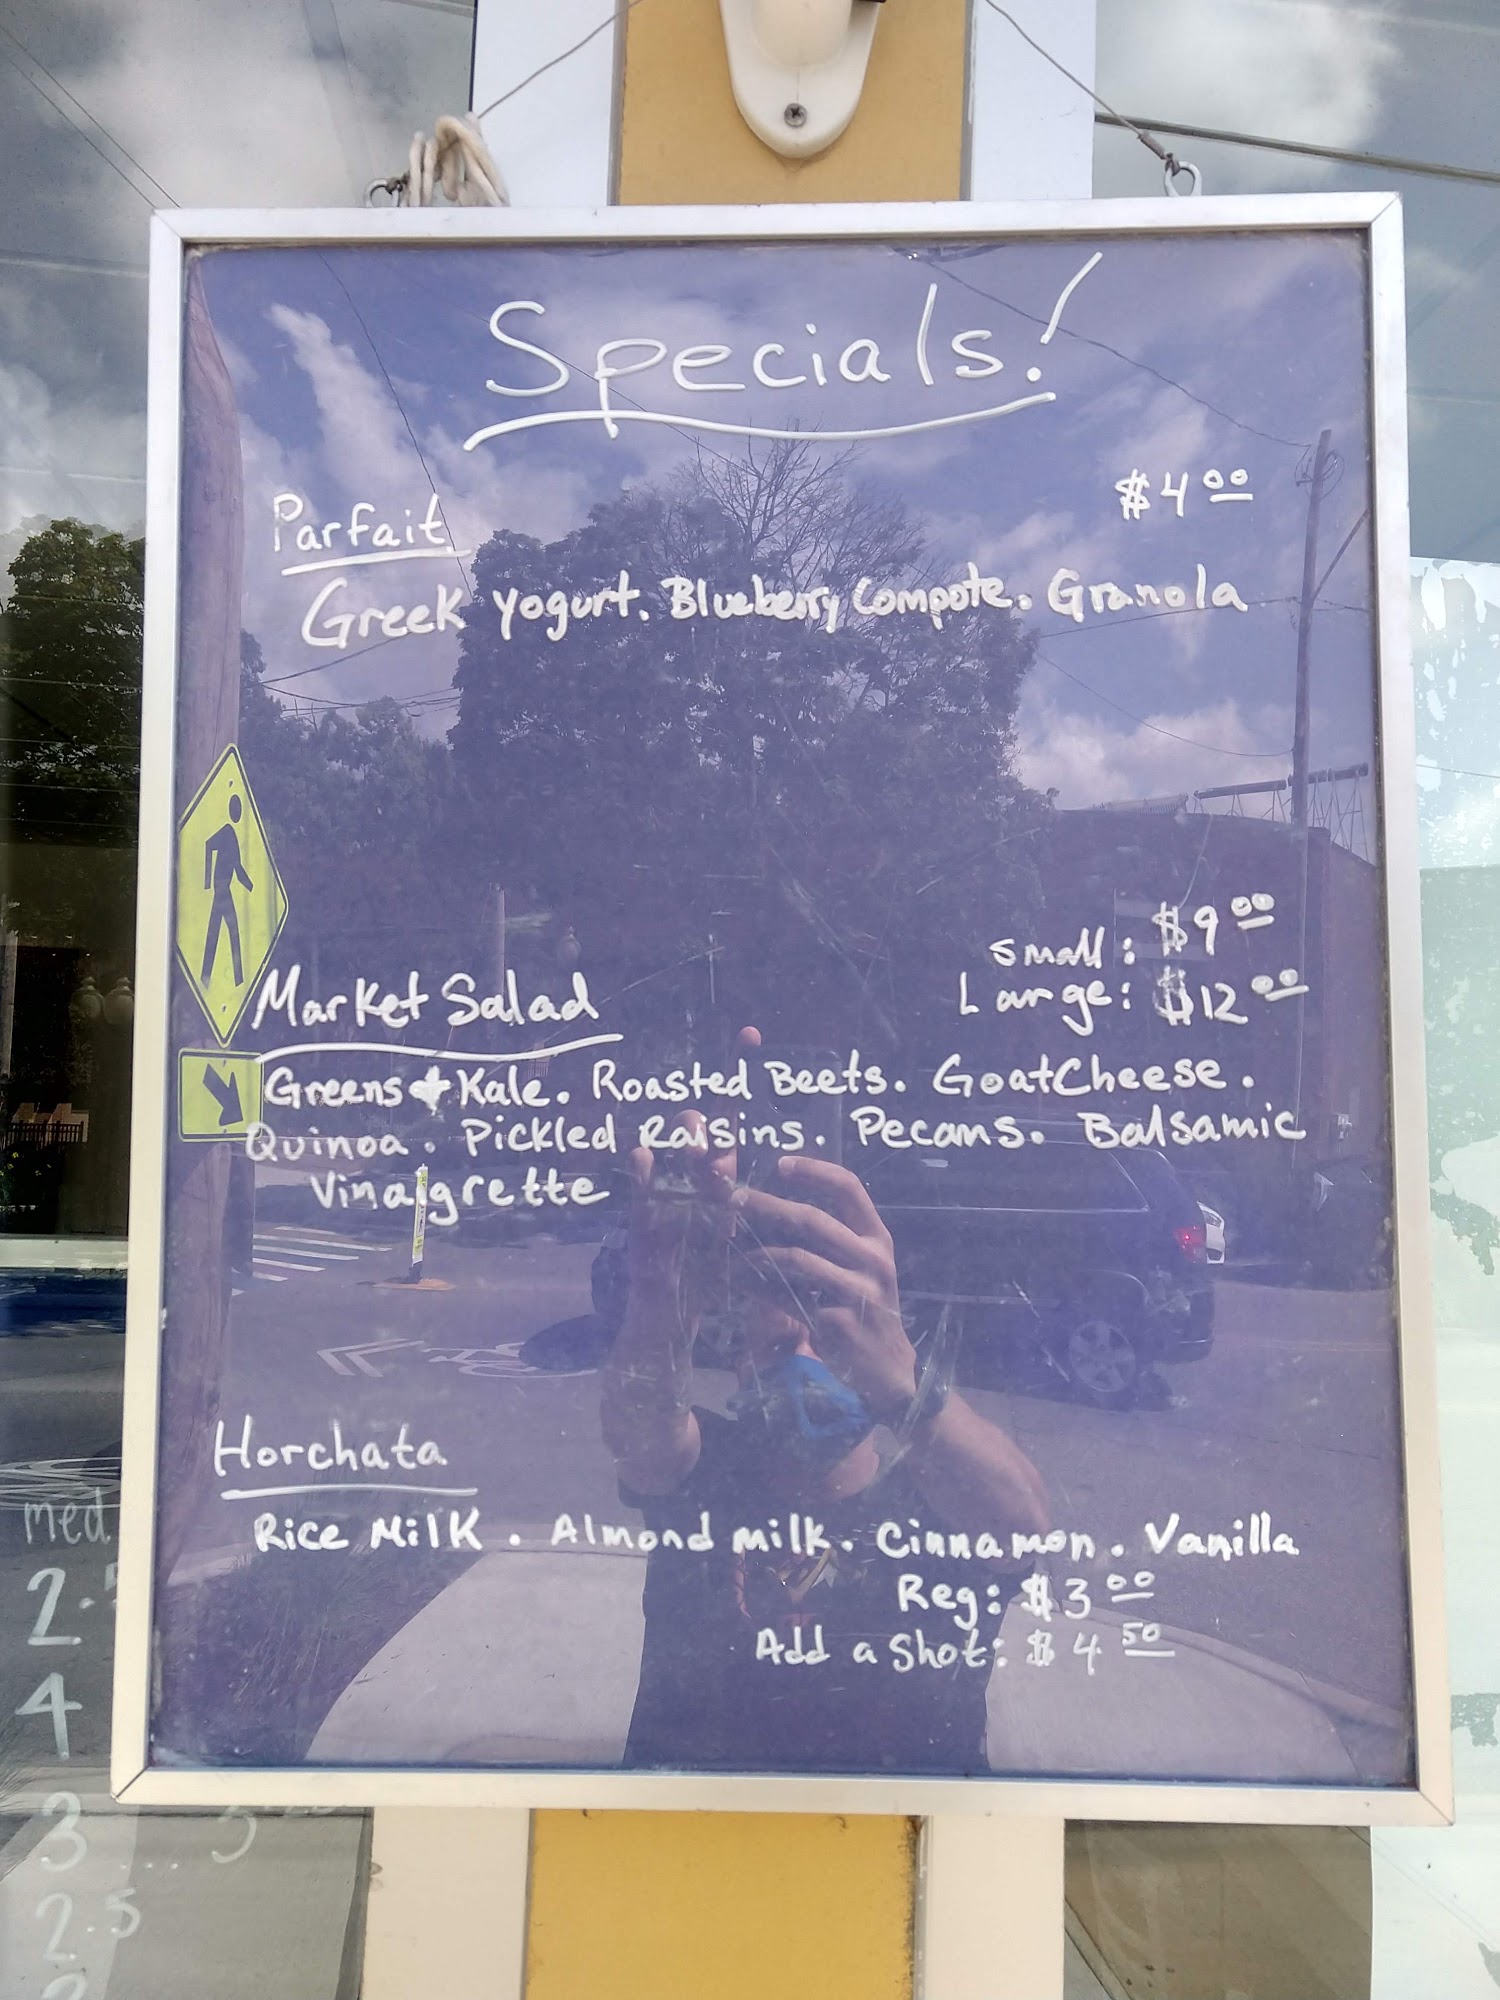 Specials!
Parfait $4.00
Greek Yogurt. Blueberry Compote. Granola
Small: $9.00
Market Salad Large: $12.00
Greens + Kale. Roasted Beets. Goat Cheese.
Quinoa. Pickled Raisins. Pecans. Balsamic
Vinaigrette
Horchata
Rice Milk. Almond milk. Cinnamon. Vanilla
Reg: $3.00
Add a Shot: $4.50
med.
2.5
4
3 ... 5
2.5